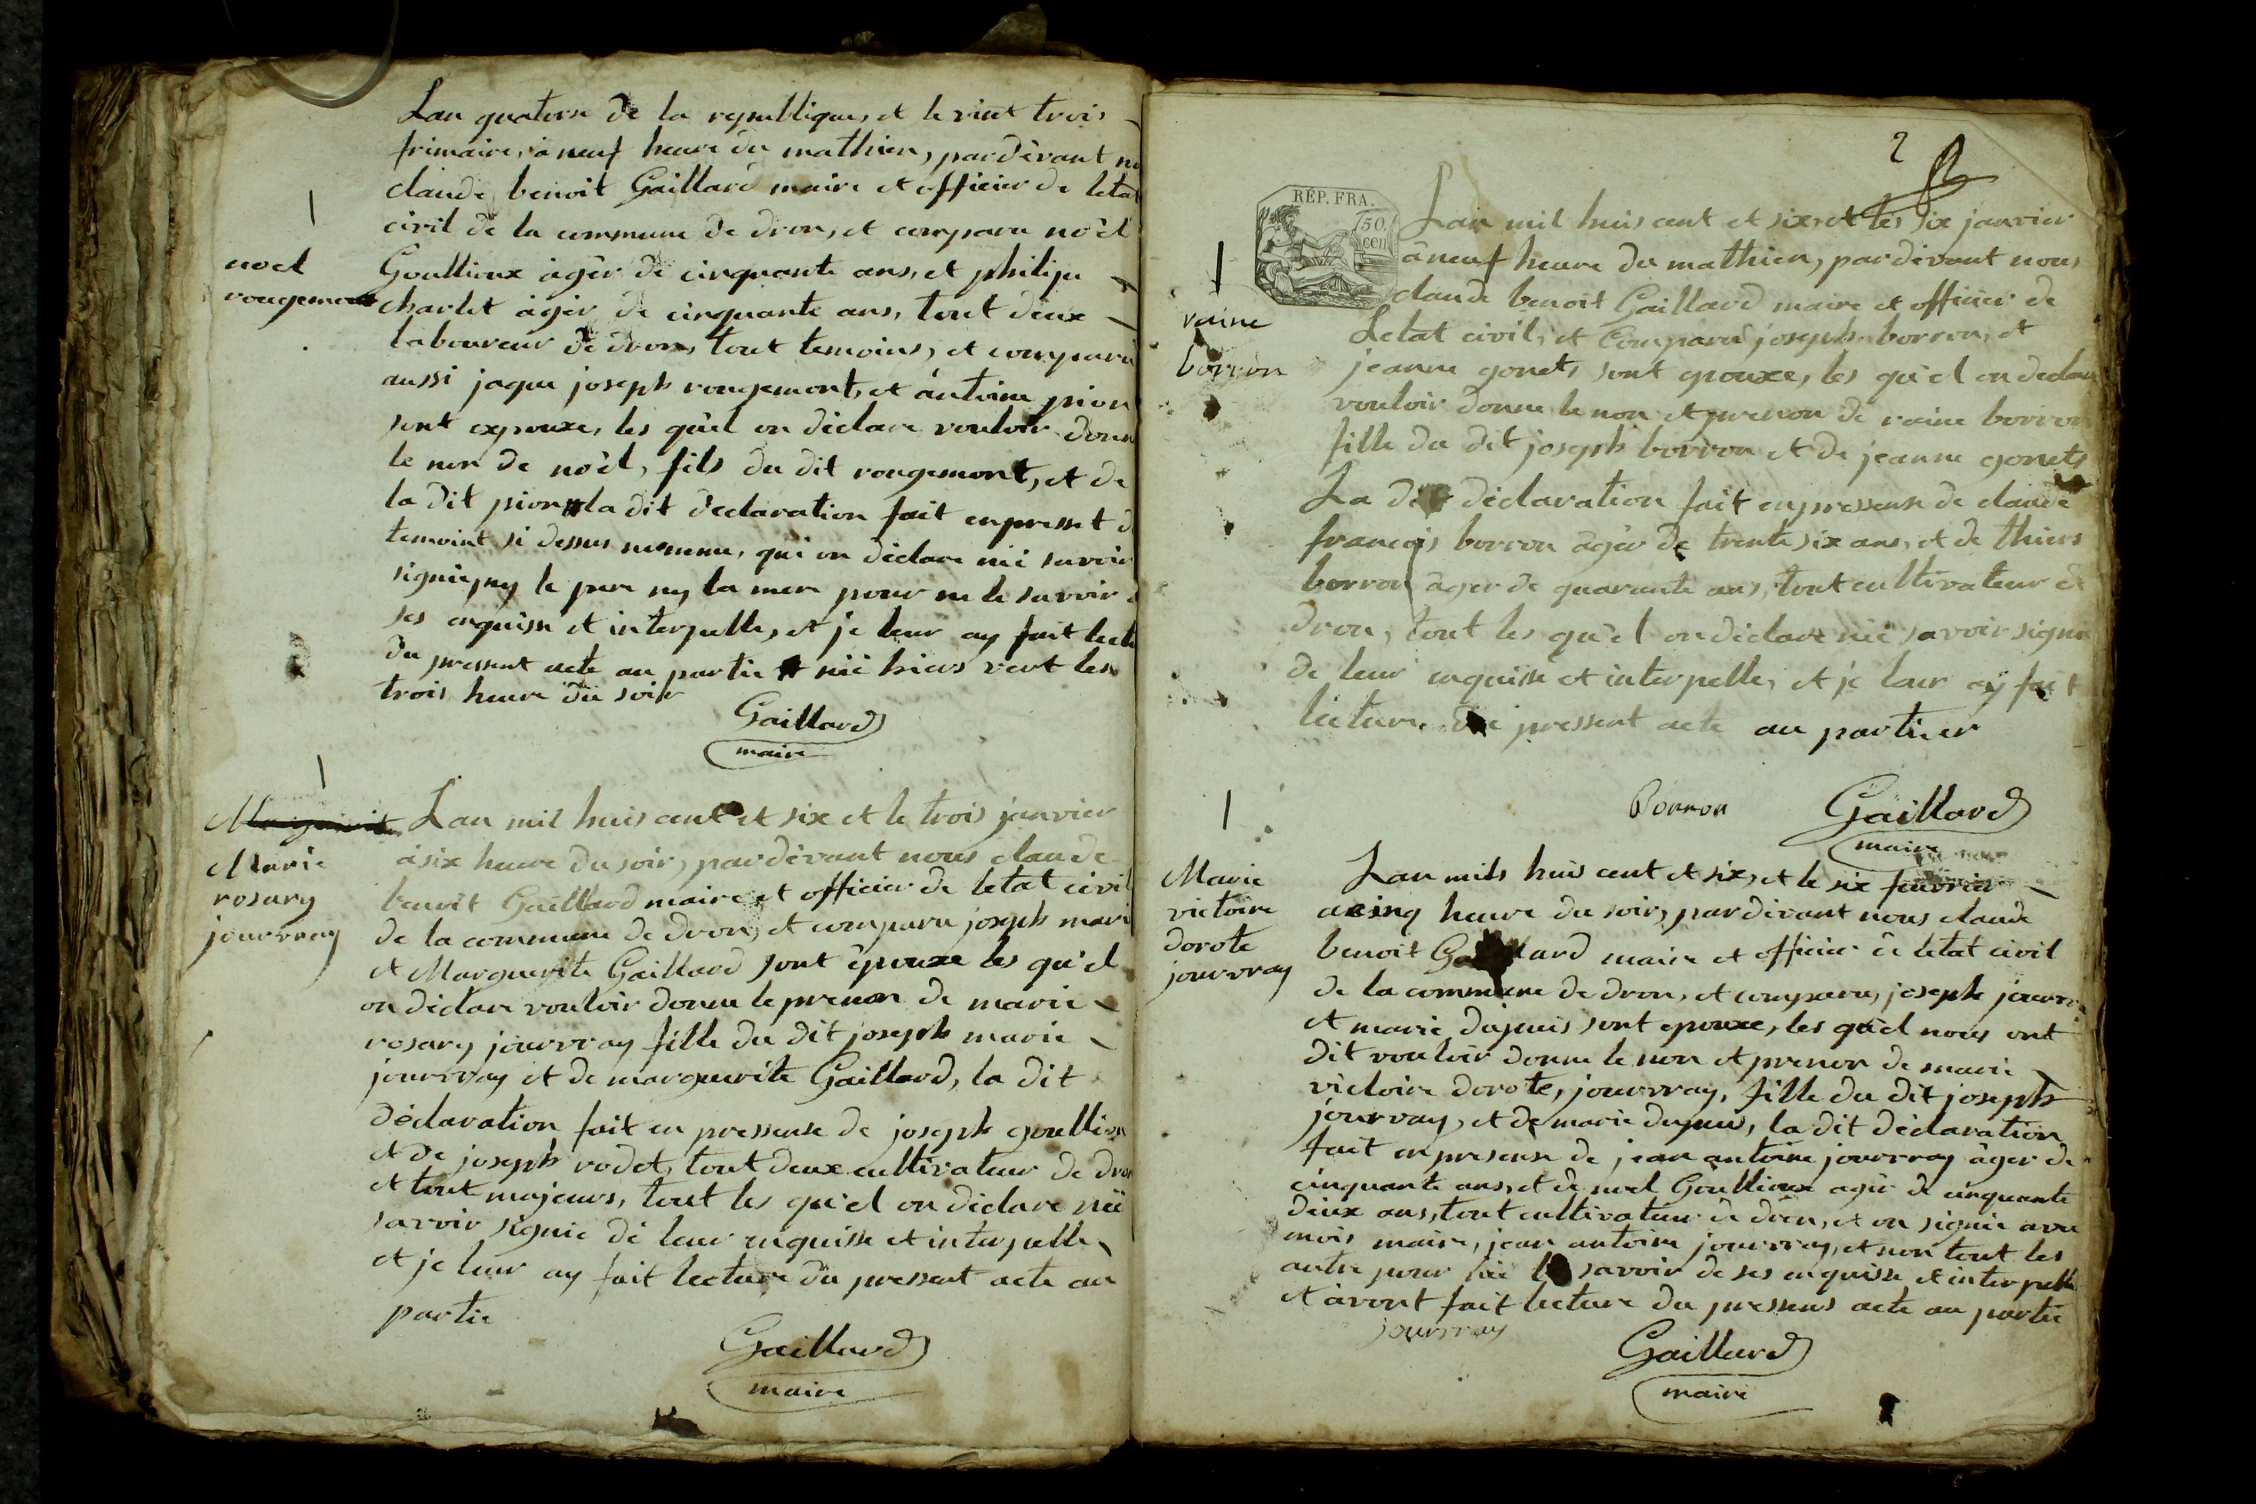 Lan quatorse de la republique, et le vint trois
frimaire, à neuf heure du mathien, pardevant
claude benoit Gaillard maire et officier de letat
civil de la commune de dron, et comparu noël
Goullioux àgér de cinquante ans, et philipe
charlet àgér de cinquante ans, tout deux
laboureur de dron, tout temoins, et comparu
aussi jaque joseph rougemont, et antoine pion
sont expouxe, les qu'el on déclare vouloir donn
le non de noël, fils du dit rougemont, et de
la dit pion la dit declaration fait enpresset d
temoint si dessus nomme, qui on déclare nïé savoir
signie, ny le pere ny la mere pour ne le savoir
ses enquisse et interpelle, et je leur ay fait lectu
du pressent acte au partie nïé hiers vert les
trois heure du soir
Gaillard
maire
1
noel
rougemont
1
Marie
rosary
jourvray
Lan mil huis cent et six et le trois janvier
à six heure du soir, pardevant nous claude
benoit Gaillard maire et officier de letat civil
de la commune de dron, et comparu joseph mari
et Marguerite Gaillard sont épouxe les qu'el
on déclare vouloir donne le prenon de marie
rosary jourvray fille du dit joseph marie
jourvray et de marguerite Gaillard, la dit
déclaration fait en pressense de joseph goullion
et de joseph rodet, tout deux cultivateur de dron
et tout majeurs, tout les qu'el on déclare nïé
savoir signie de leur enquisse et interpelle,
et je leur ay fait lecture du pressent acte au
partie
Gaillard
maire
2
RÉP. FRA.
50
cen
1
raine
borron
Lan mil huis cent et six, et les six janvier
à neuf heure du mathien, pardevant nous
claude benoit Gaillard maire et officier de
Letat civil, et comparu joseph borron, et
jeanne gonets sont epouxe, les qu'el on declar
vouloir donne le non et prenon de raine borron
fille du dit joseph borron et de jeanne gonets
La dit déclaration fait enpressense de claude
francois borron àgér de trente six ans, et de thiers
borron àger de quarante ans, tout cultivateur d
dron, tout les qu'el on déclare nïé savoir signe
de leur enquisse et interpelle, et je leur aÿ fait
lecture du pressent acte au partier
Borron
Gaillard
maire
1
Marie
victoire
dorote
jourvray
Lan mils huis cent et six, et le six fevrier
a cinq heure du soir, pardevant nous claude
benoit Gaillard maire et officier de letat civil
de la commune de dron, et comparu, joseph jourvr
et marie dupuis sont epouxe, les qu'el nous ont
dit vouloir donne le non et prenon de marie
victoire dorote, jourvray, fille du dit joseph
jourvray, et de marie dupuis, la dit déclaration
fait en presense de jean antoine jourvray àger de
cinquante ans, et de noel Goullioux agér de cinquante
deux ans, tout cultivateur de dron, et on signie avec
mois maire, jean antoine jourvray, et non tout les
autre pour nïé le savoir de ses enquisse et interpelle
et avont fait lecture du pressens acte au partie
jourvray
Gaillard
maire